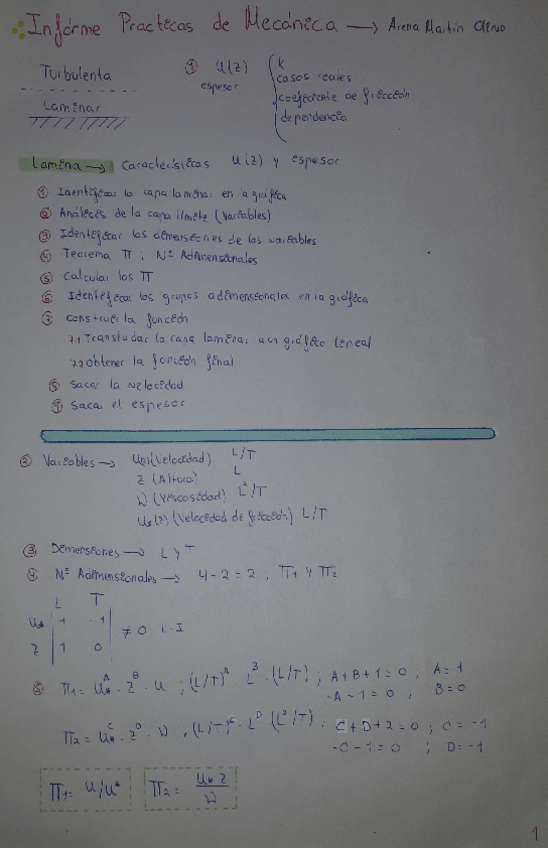 Informe Practicas de Mecánica → Arena Martín
Turbulenta
Laminar
① U(z)
espesor
K
casos reales
coeficiente de fricción
dependencia
Lamina → Características U(z) y espesor
① Identificar la capa laminar en a gráfica
② Análisis de la capa límite (Variables)
③ Identificar las dimensiones de las variables
④ Teorema Π ; Nº Adimensionales
⑤ Calcular los Π
⑥ Identificar los grupos adimensionales en la gráfica
⑦ Construir la función
7.1 Transladar la capa laminar a un gráfico lineal
7.2 Obtener la función final
⑧ Sacar la velocidad
⑨ Sacar el espesor
② Variables → (Velocidad) L/T
Z (Altura) L
ν (Viscosidad) L²/T
U*(z) (Velocidad de fricción) L/T
③ Dimensiones → L y T
④ Nº Adimensionales → 4-2=2 ; Π1 y Π2
L T
U* 1 -1
Z 1 0
≠ 0 L.I
⑤ Π1 = U*^A · Z^B · U ; (L/T)^A · L^B · (L/T) ; A+B+1=0 ; A=1
-A-1=0 , B=0
Π2 = U*^C · Z^D · ν ; (L/T)^C · L^D (L²/T) ; C+D+2=0 ; C=-1
-C-1=0 ; D=-1
Π1 = U/U*
Π2 = U* z / ν
1